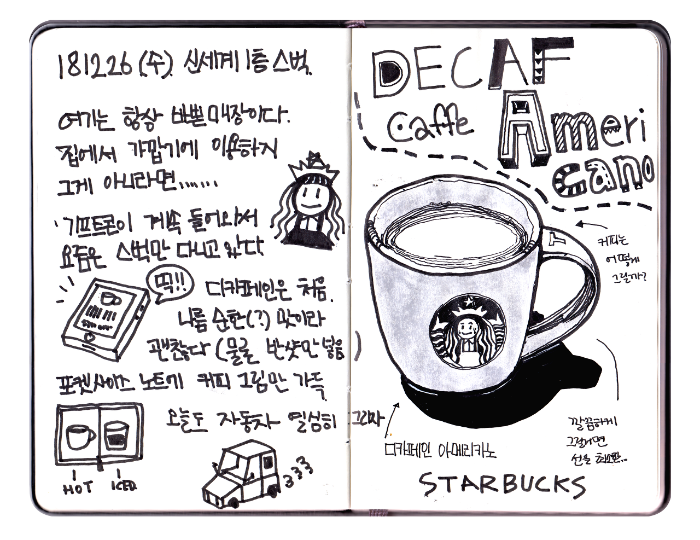 181226 (수). 신세계 1층 스벅.
여기는 항상 바쁜 매장이다.
집에서 가깝기에 이용하지
그게 아니라면......
기프트콘이 계속 들어와서
요즘은 스벅만 다니고 있다
띡!!
디카페인은 처음.
나름 순한(?) 맛이라
괜찮다 (물론 반샷만 넣음)
포켓사이즈 노트에 커피 그림만 가득
오늘도 자동차 열심히 그리자
HOT ICED
333
DECAF
Caffe
Ameri
cano
커피는
어떻게
그릴까?
디카페인 아메리카노
깔끔하게
그릴려면
선을
STARBUCKS